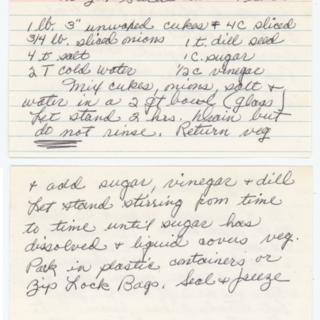 1 lb. 3" unwaxed cukes # 4C sliced
3/4 lb. sliced onions 1 t. dill seed
4 t salt 1 C. sugar
2 T cold water 1/2 c vinegar
Mix cukes, onions, salt &
water in a 2 qt bowl (glass)
Let stand 2 hrs. Drain but
do not rinse. Return veg
& add sugar, vinegar & dill
Let stand stirring from time
to time until sugar has
dissolved & liquid covers veg.
Pack in plastic containers or
Zip Lock Bags. Seal & freeze